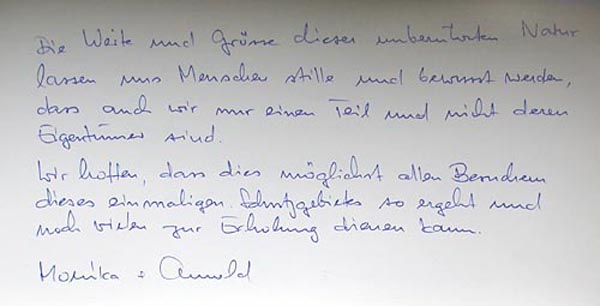 Die Weite und Grösse dieser unberührten Natur
lassen uns Menschen stille und bewusst werden,
dass auch wir nur einen Teil und nicht deren
Eigentümer sind.
Wir hoffen, dass dies möglichst allen Besuchern
dieses einmaligen Schutzgebietes so ergeht und
noch vielen zur Erholung dienen kann.
Monika + Arnold